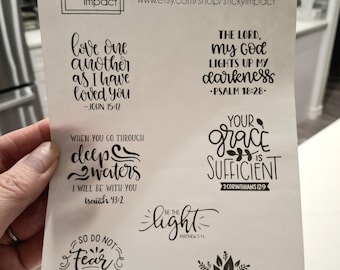 impact
www.etsy.com/shop/stickyimpact
love one
another
as I have
loved you
-JOHN 15:12
THE LORD,
my God
LIGHTS UP MY
darkeness
-PSALM 18:28-
WHEN YOU GO THROUGH
deep
waters
I WILL BE WITH YOU
Isaiah 43:2
YOUR
grace
IS
SUFFICIENT
2 CORINTHIANS 12:9
BE THE
light
MATTHEW 5:14
SO DO NOT
Fear